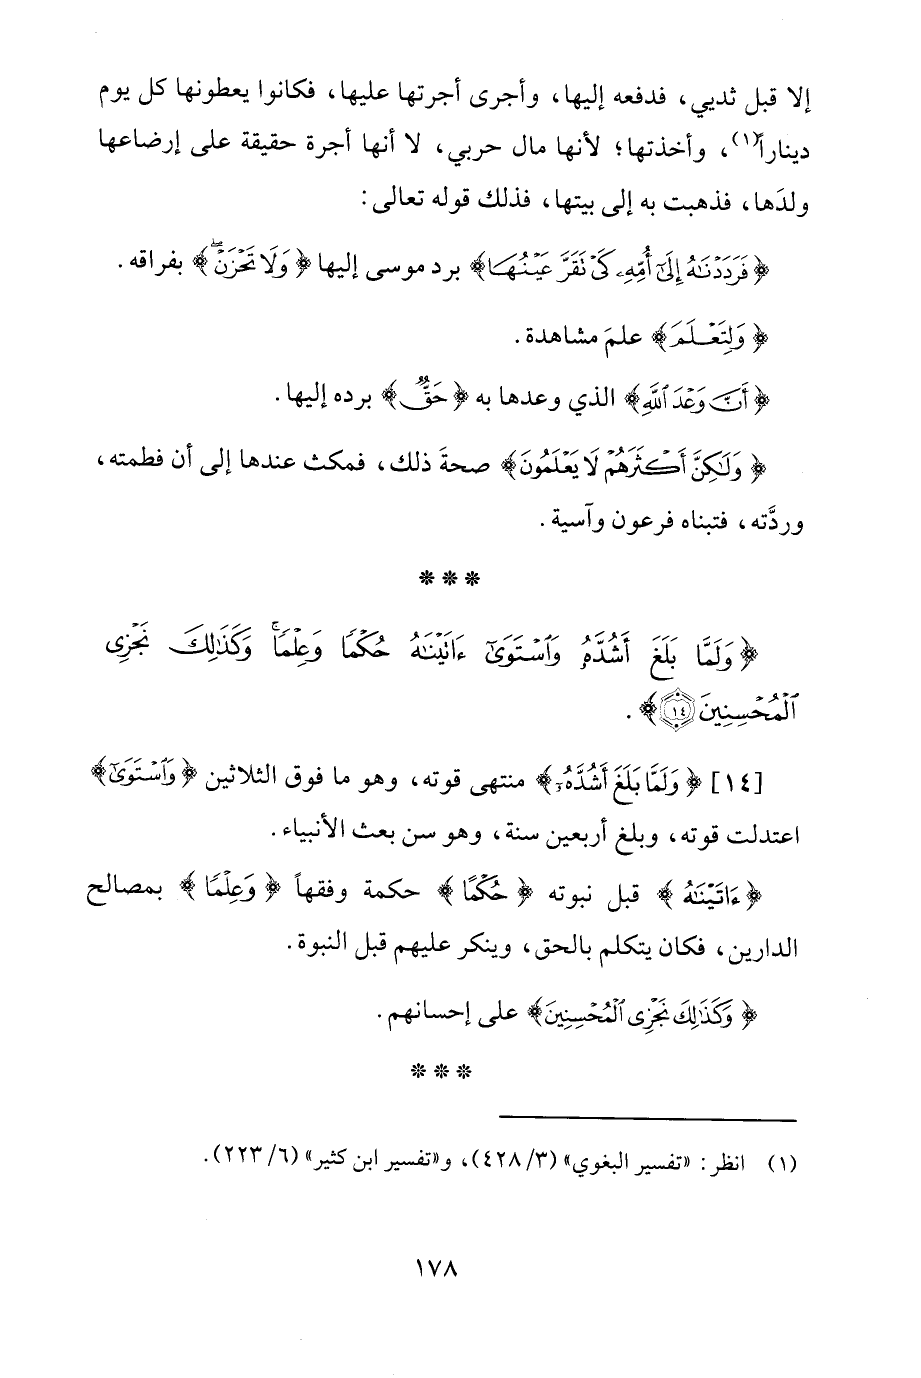 إلا قبل ثديي، فدفعه إليها، وأجرى أجرتها عليها، فكانوا يعطونها كل يوم
ديناراً(١)، وأخذتها؛ لأنها مال حربي، لا أنها أجرة حقيقة على إرضاعها
ولدَها، فذهبت به إلى بيتها، فذلك قوله تعالى:
﴿فَرَدَدْنَٰهُ إِلَىٰٓ أُمِّهِۦ كَىْ تَقَرَّ عَيْنُهَا﴾ برد موسى إليها ﴿وَلَا تَحْزَنَۖ﴾ بفراقه.
﴿وَلِتَعْلَمَ﴾ علمَ مشاهدة.
﴿أَنَّ وَعْدَ ٱللَّهِ﴾ الذي وعدها به ﴿حَقٌّ﴾ برده إليها.
﴿وَلَٰكِنَّ أَكْثَرَهُمْ لَا يَعْلَمُونَ﴾ صحةَ ذلك، فمكث عندها إلى أن فطمته،
وردَّته، فتبناه فرعون وآسية.
* * *
﴿وَلَمَّا بَلَغَ أَشُدَّهُۥ وَٱسْتَوَىٰٓ ءَاتَيْنَٰهُ حُكْمًا وَعِلْمًاۚ وَكَذَٰلِكَ نَجْزِى
ٱلْمُحْسِنِينَ ١٤﴾.
[١٤] ﴿وَلَمَّا بَلَغَ أَشُدَّهُۥ﴾ منتهى قوته، وهو ما فوق الثلاثين ﴿وَٱسْتَوَىٰٓ﴾
اعتدلت قوته، وبلغ أربعين سنة، وهو سن بعث الأنبياء.
﴿ءَاتَيْنَٰهُ﴾ قبل نبوته ﴿حُكْمًا﴾ حكمة وفقهاً ﴿وَعِلْمًا﴾ بمصالح
الدارين، فكان يتكلم بالحق، وينكر عليهم قبل النبوة.
﴿وَكَذَٰلِكَ نَجْزِى ٱلْمُحْسِنِينَ﴾ على إحسانهم.
* * *
(١) انظر: «تفسير البغوي» (٣/ ٤٢٨)، و«تفسير ابن كثير» (٦/ ٢٢٣).
١٧٨